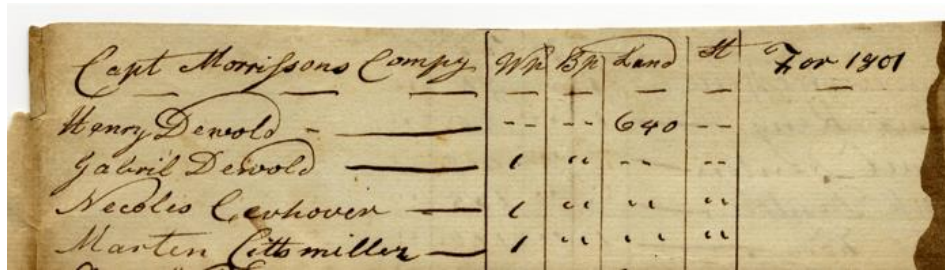 Capt Morrissons Compy Wp Bp Land St For 1801
Henry Dewold - -- -- 640 --
Gabril Dewold 1 " -- --
Necolis Cerhover 1 " " "
Marten Cittsmiller 1 " " "